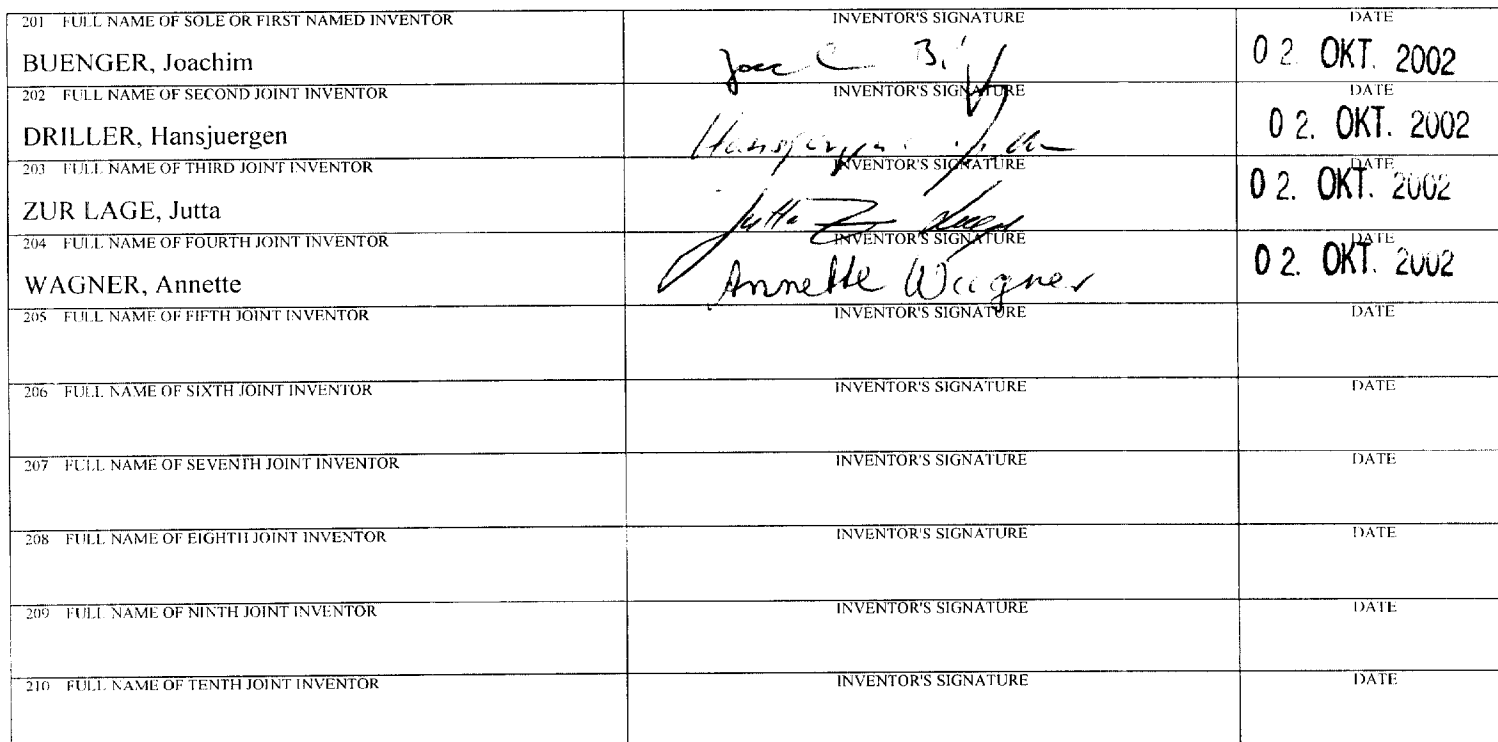 201 FULL NAME OF SOLE OR FIRST NAMED INVENTOR INVENTOR'S SIGNATURE DATE
BUENGER, Joachim 02. OKT. 2002
202 FULL NAME OF SECOND JOINT INVENTOR INVENTOR'S SIGNATURE DATE
DRILLER, Hansjuergen 02. OKT. 2002
203 FULL NAME OF THIRD JOINT INVENTOR INVENTOR'S SIGNATURE DATE
ZUR LAGE, Jutta Jutta 02. OKT. 2002
204 FULL NAME OF FOURTH JOINT INVENTOR INVENTOR'S SIGNATURE DATE
WAGNER, Annette Annette Wagner 02. OKT. 2002
205 FULL NAME OF FIFTH JOINT INVENTOR INVENTOR'S SIGNATURE DATE
206 FULL NAME OF SIXTH JOINT INVENTOR INVENTOR'S SIGNATURE DATE
207 FULL NAME OF SEVENTH JOINT INVENTOR INVENTOR'S SIGNATURE DATE
208 FULL NAME OF EIGHTH JOINT INVENTOR INVENTOR'S SIGNATURE DATE
209 FULL NAME OF NINTH JOINT INVENTOR INVENTOR'S SIGNATURE DATE
210 FULL NAME OF TENTH JOINT INVENTOR INVENTOR'S SIGNATURE DATE